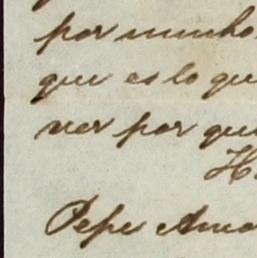 por mucho
que es lo que
ver por que
H
Pepe Ama